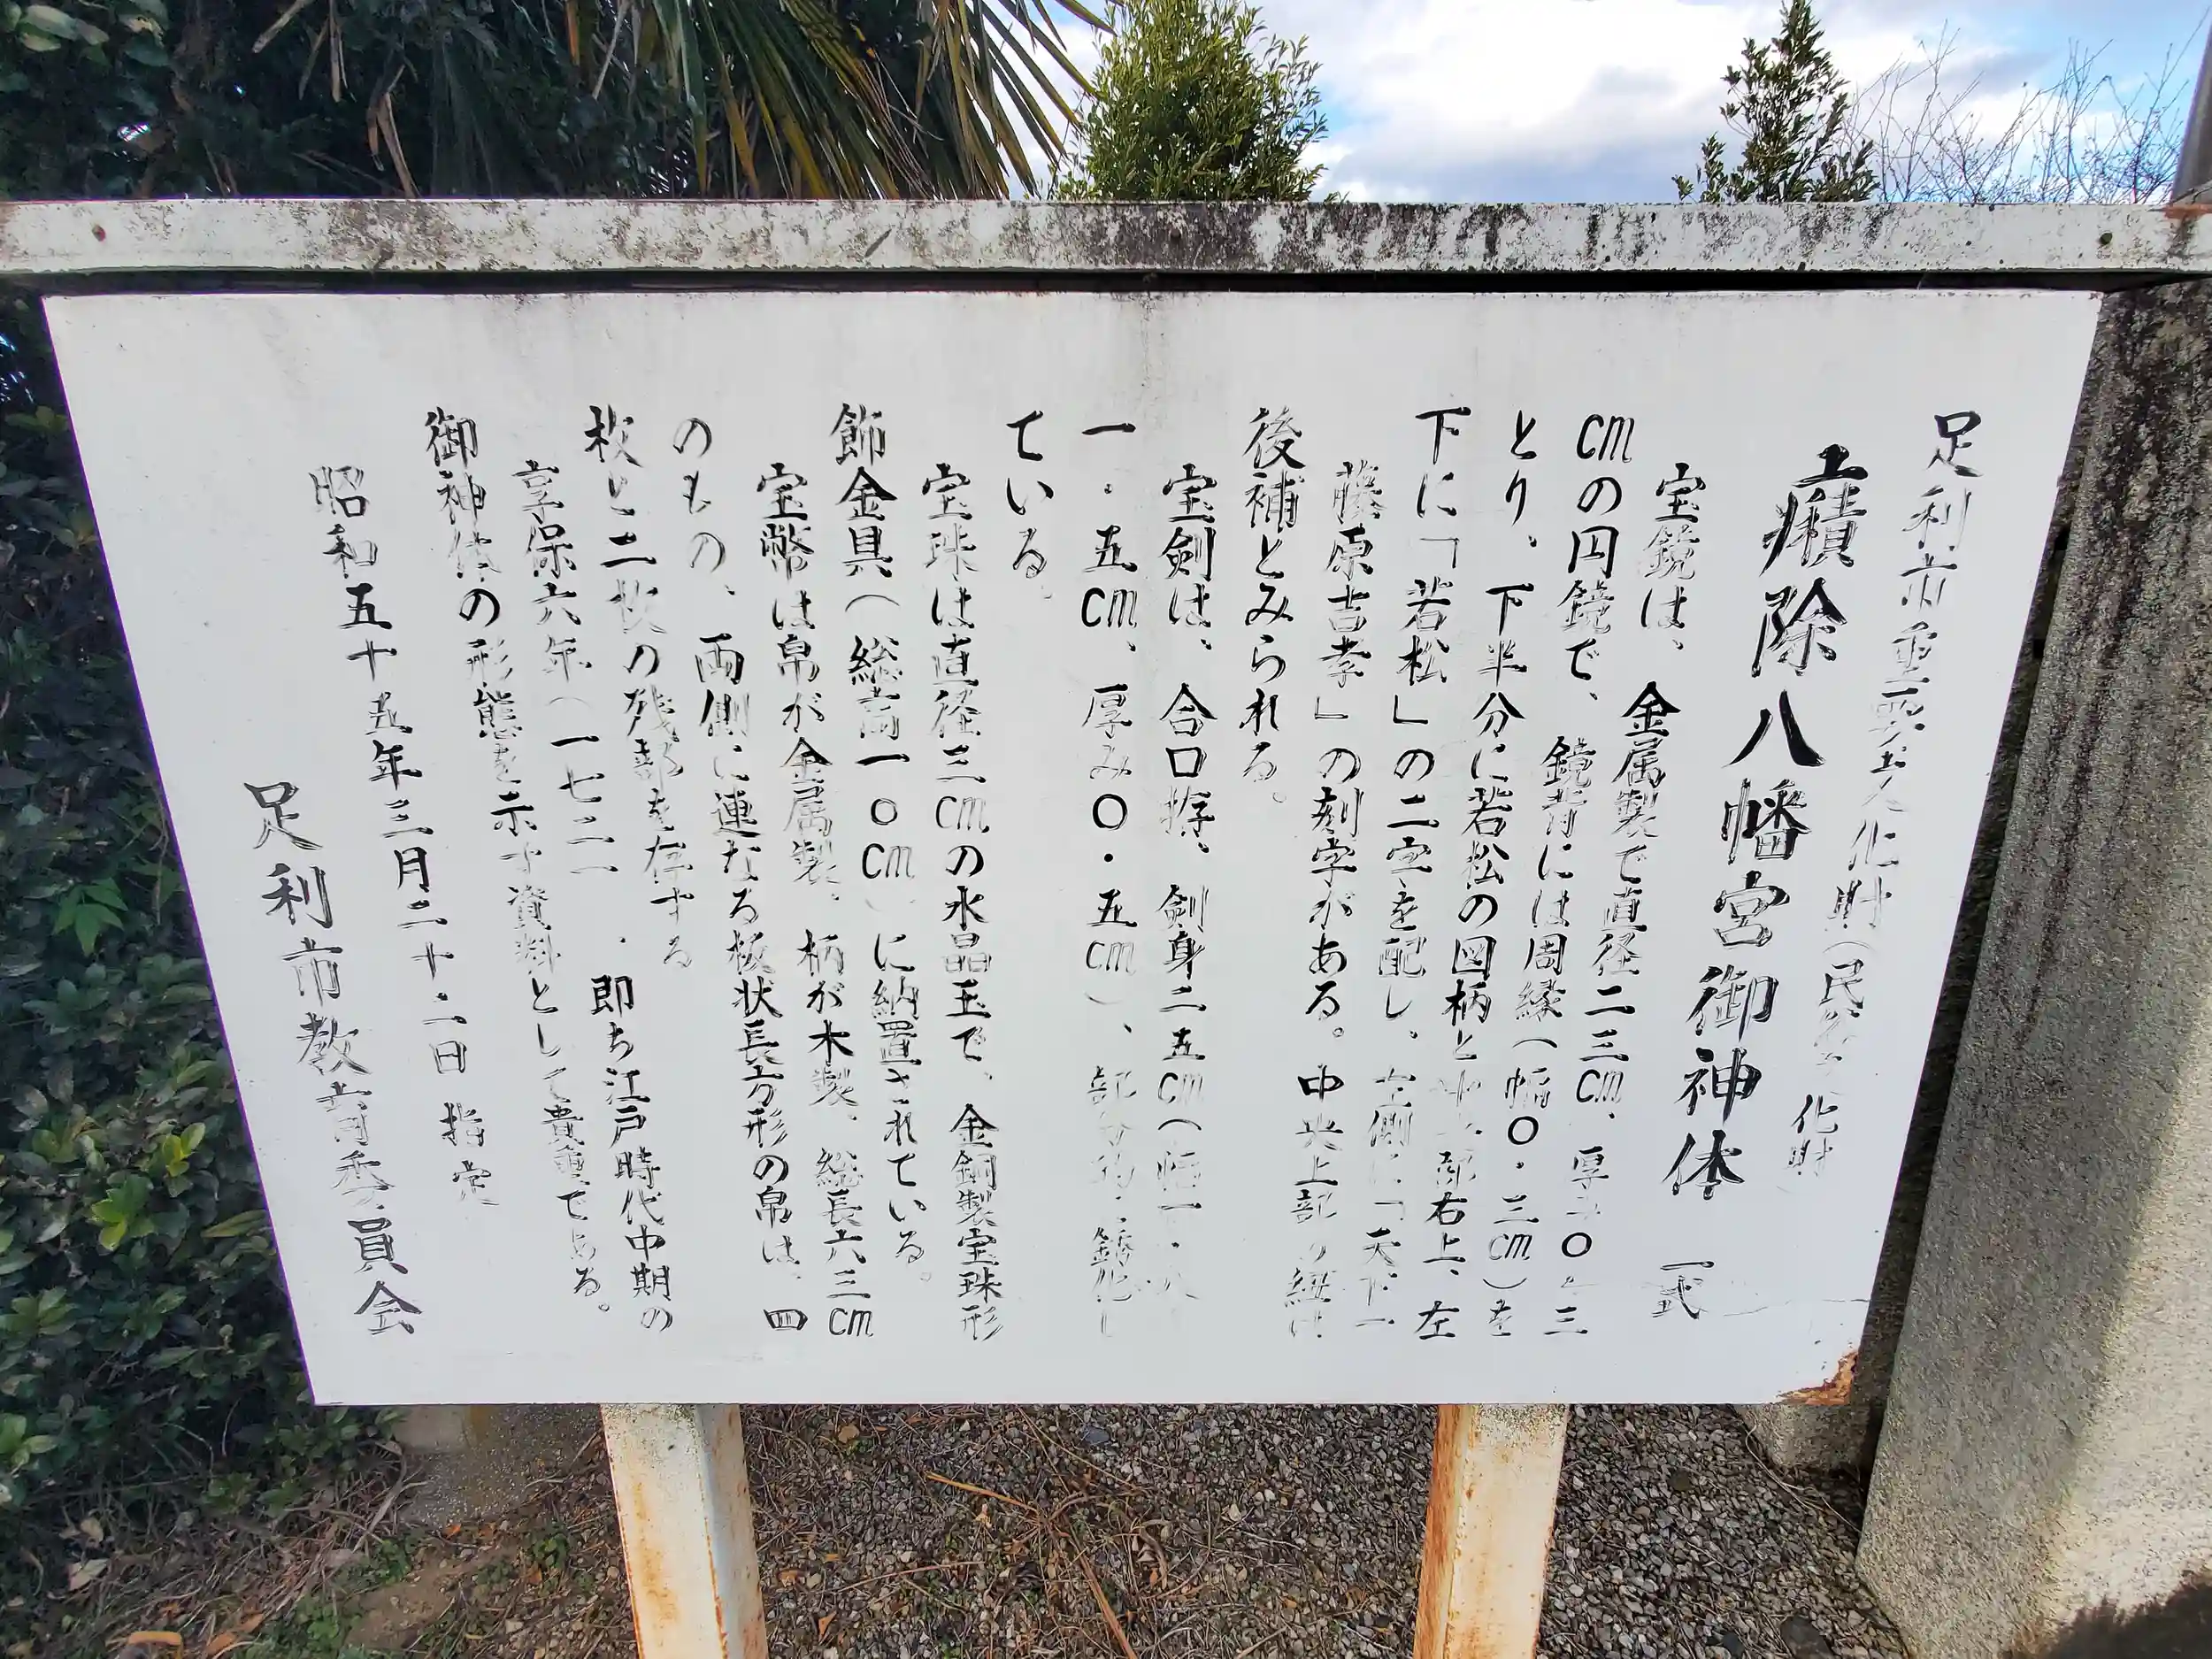 足利市重要文化財(民俗文化財)
疣除八幡宮御神体 一式
宝鏡は、金属製で直径二三cm、厚み〇・三
cmの円鏡で、鏡背には周縁(幅〇・三cm)を
とり、下半分に若松の図柄と中央部右上、左
下に「若松」の二字を配し、左側に「天下一
藤原吉孝」の刻字がある。中央上部の紐は
後補とみられる。
宝剣は、合口拵、剣身二五cm(幅一・八
一・五cm、厚み〇・五cm)、部分的に錆化し
ている。
宝珠は直径三cmの水晶玉で、金銅製宝珠形
飾金具(総高一〇cm)に納置されている。
宝幣は帛が金属製、柄が木製、総長六三cm
のもの、両側に連なる板状長方形の帛は、四
枚と二枚の残部を存する
享保六年(一七二一 ・即ち江戸時代中期の
御神体の形態を示す資料として貴重である。
昭和五十五年三月二十二日 指定
足利市教育委員会